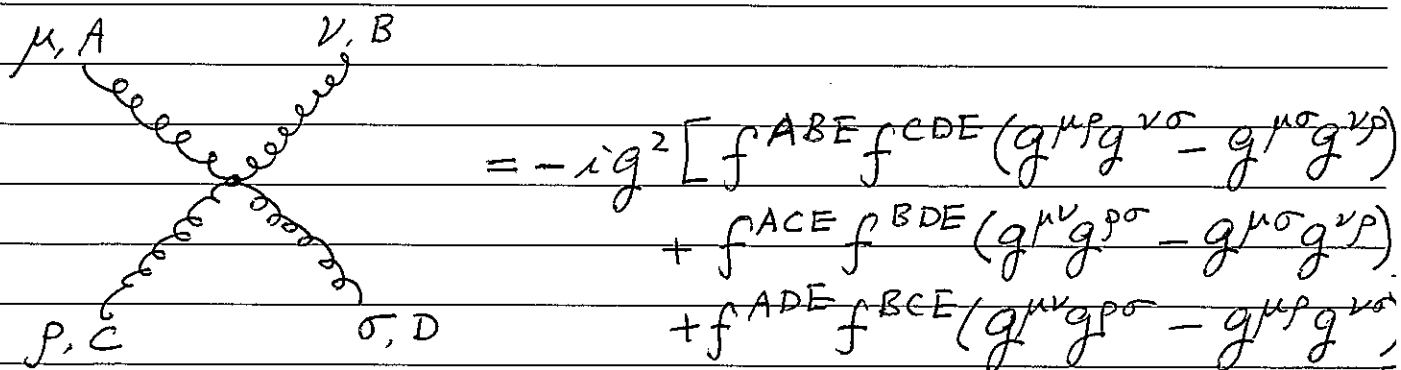 μ, A
ν, B
= -ig² [ f^{ABE} f^{CDE} (g^{μρ} g^{νσ} - g^{μσ} g^{νρ})
+ f^{ACE} f^{BDE} (g^{μν} g^{ρσ} - g^{μσ} g^{νρ})
+ f^{ADE} f^{BCE} (g^{μν} g^{ρσ} - g^{μρ} g^{νσ})
ρ, C
σ, D